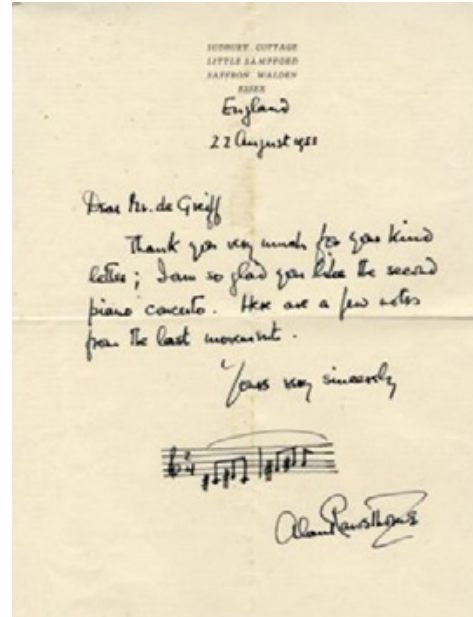 SUDBURY COTTAGE
LITTLE SAMPFORD
SAFFRON WALDEN
ESSEX
England
22 August
Dear Mr. de Greiff
Thank you very much for your kind
letter; I am so glad you like the second
piano concerto. Here are a few notes
from the last movement.
Yours very sincerely
Alan Rawsthorne